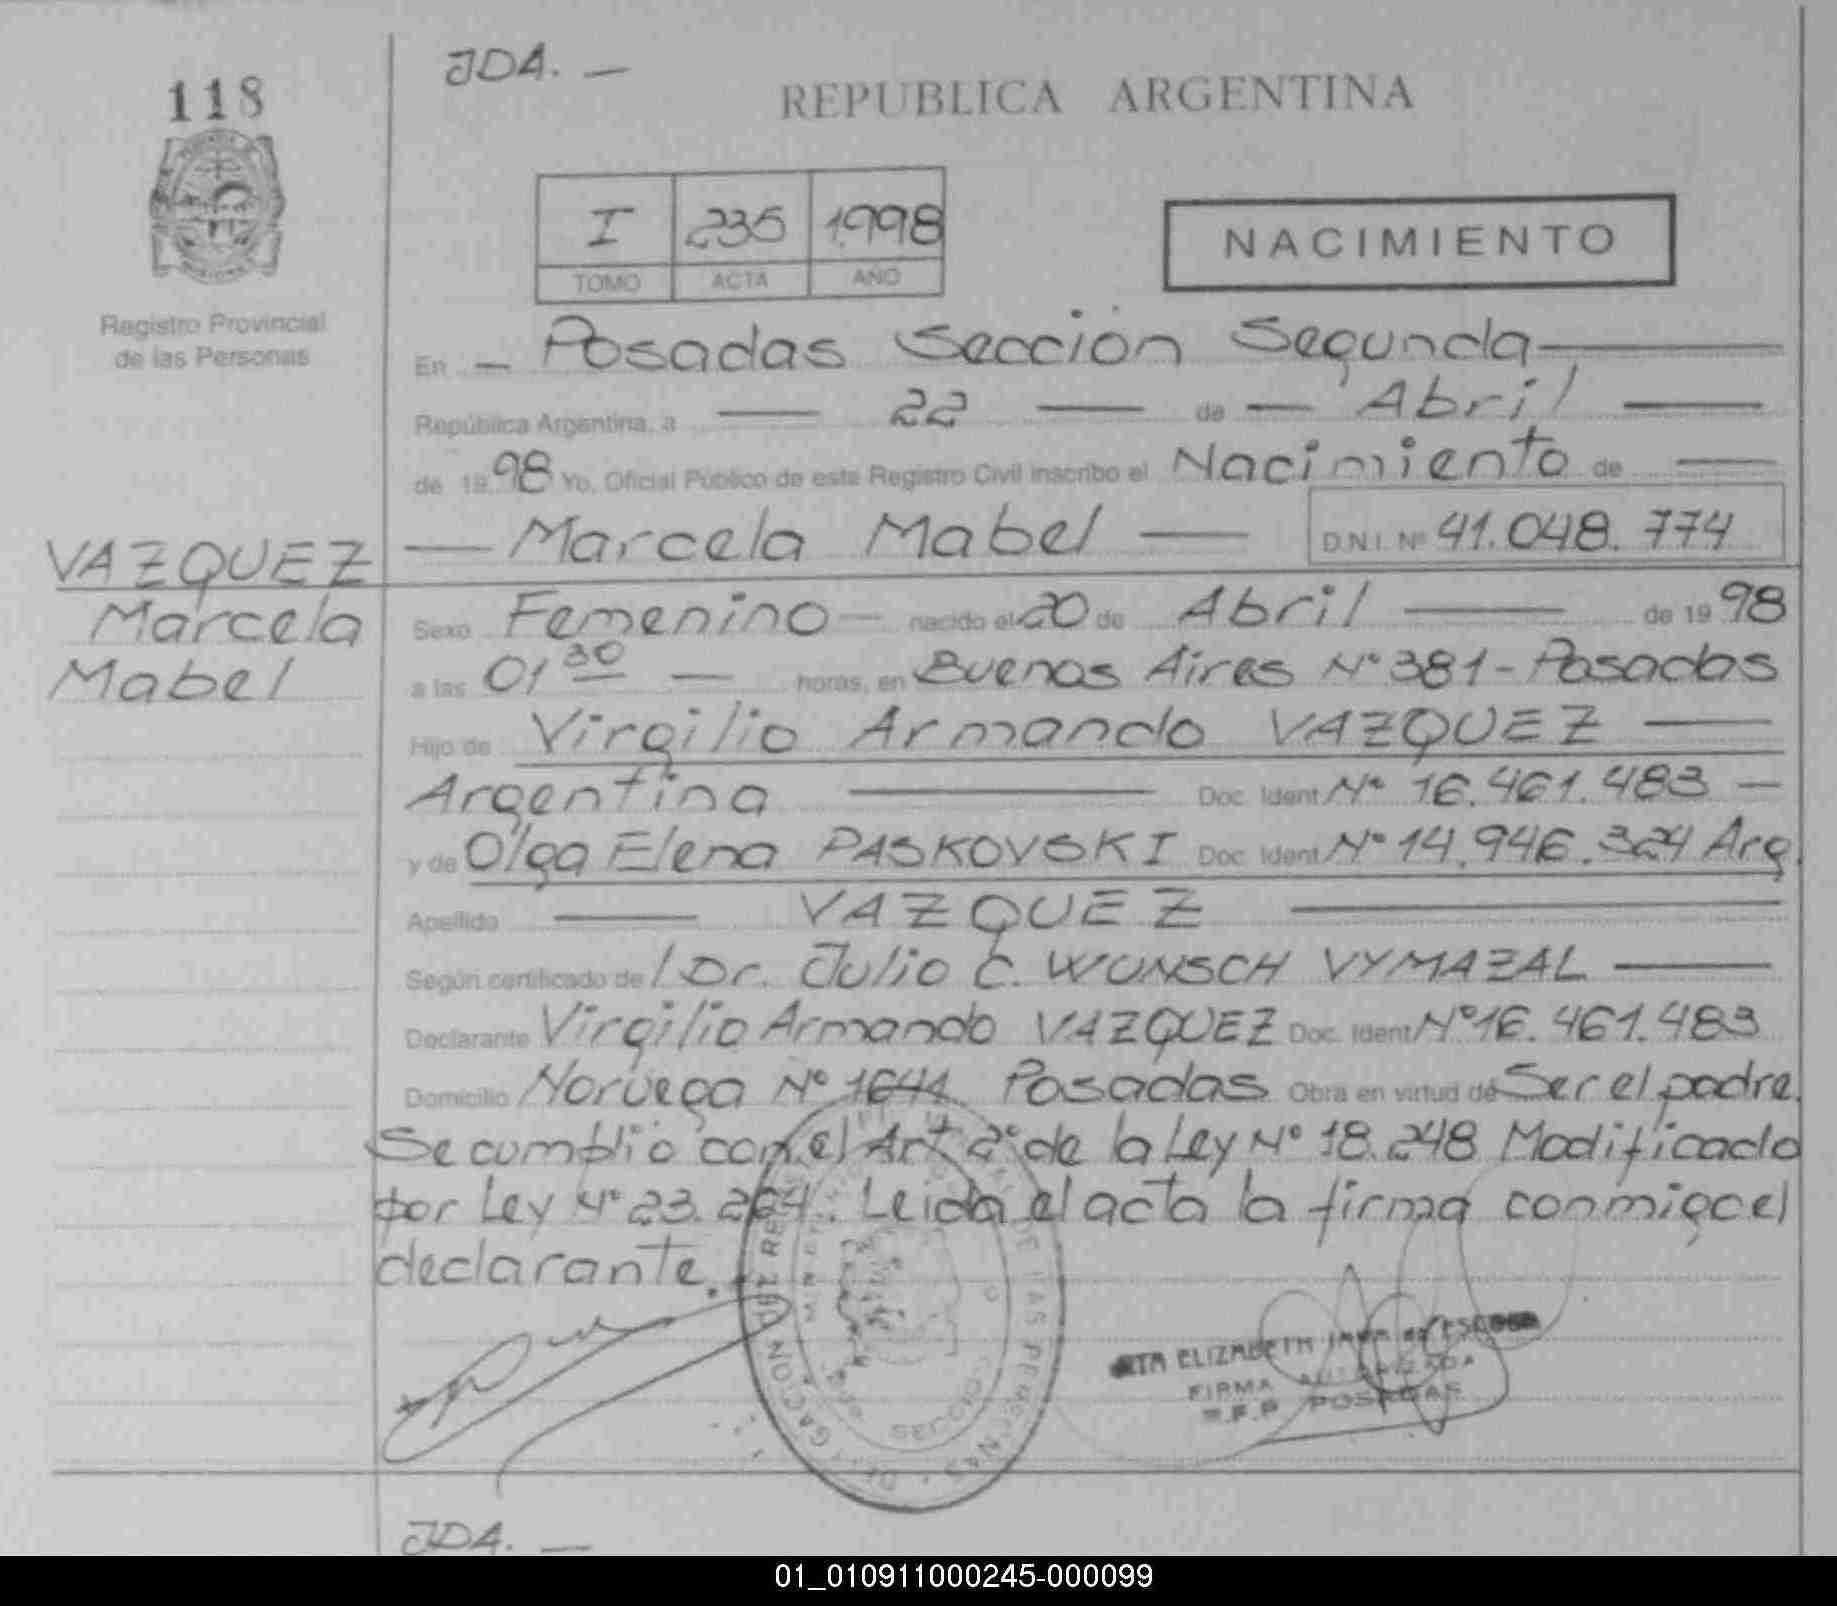 118
JDA. —
REPUBLICA ARGENTINA
I 235 1.998
TOMO ACTA AÑO
NACIMIENTO
Registro Provincial
de las Personas
En — Posadas Sección Segunda —
República Argentina, a — 22 — de — Abril —
de 19 98 Yo, Oficial Público de este Registro Civil inscribo el Nacimiento de —
— Marcela Mabel — D.N.I. Nº 41.048.774
VAZQUEZ
Marcela
Mabel
Sexo Femenino — nacido el 20 de Abril — de 19 98
a las 01 30 — horas, en Buenos Aires Nº 381 - Posadas
Hijo de Virgilio Armando VAZQUEZ —
Argentina — Doc. Ident Nº 16.461.483 —
y de Olga Elena PASKOVSKI Doc. Ident Nº 14.946.324 Arg.
Apellido — VAZQUEZ —
Según certificado de / Dr. Julio C. WUNSCH VYMAZAL —
Declarante Virgilio Armando VAZQUEZ Doc. Ident Nº 16.461.483
Domicilio Noruega Nº 1641 Posadas Obra en virtud de Ser el padre.
Se cumplió con el Art 2º de la Ley Nº 18.248 Modificado
por Ley Nº 23.264. Leida el acta la firma conmigo el
declarante.
ELIZABETH
FIRMA AUTORIZADA
POSADAS
JDA. —
01_010911000245-000099